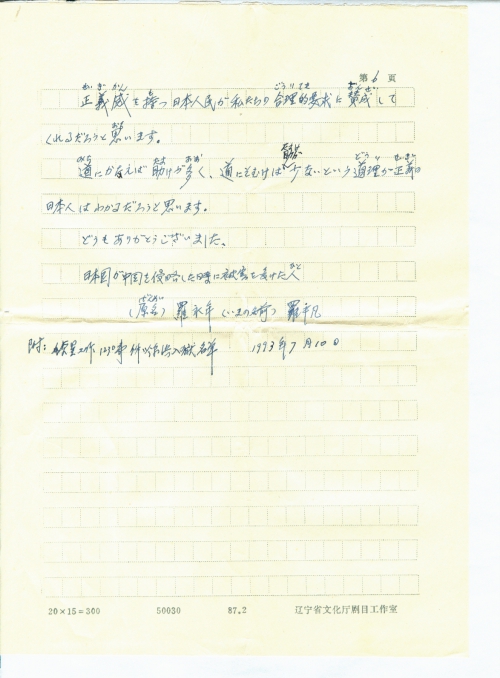 第 6 页
正義感を持つ日本人民が私たちの合理的要求に賛成して
くれるだろうと思います。
道にかなえば助けが多く、道にそむけば助けが少ないという道理が正義の
日本人はわかるだろうと思います。
どうもありがとうございました。
日本国が中国を侵略した時に被害を受けた人
(原名) 羅永年 (いまの名前) 羅平凡
附: 工作 事件 入獄名单 1993年7月10日
20×15=300 50030 87.2 辽宁省文化厅剧目工作室